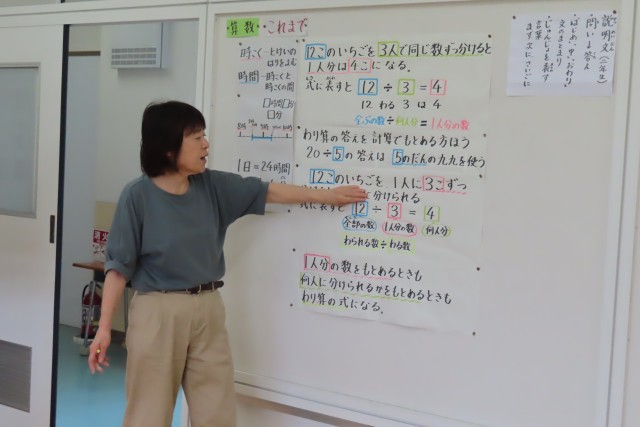 算数 これまで
時こく-とけいの
はりをよむ
時間-時こくと
時こくの間
□時間(□)
□分
1日=24時間
12このいちごを3人で同じ数ずつ分けると
1人分は4こになる。
式に表すと 12÷3=4
12 わる 3 は 4
全ぶの数÷何人分=1人分の数
わり算の答えを計算でもとめる方ほう
20÷5の答えは 5のだんの九九を使う
12このいちごを 1人に3こずつ
に分けられる
式に表すと 12÷3=4
全部の数 1人分の数 何人分
わられる数÷わる数
1人分の数をもとめるときも
何人に分けられるかをもとめるときも
わり算の式になる。
説明文(二年生)
問いと答え
はじめ・中・おわり
文のまとまり
・じゅんじょを表す
言葉
まず 次に さいごに